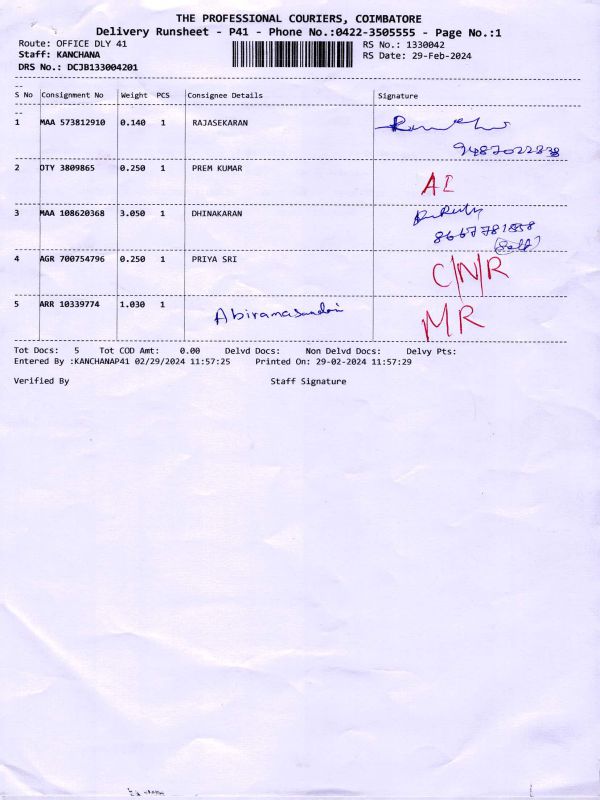 THE PROFESSIONAL COURIERS, COIMBATORE
Delivery Runsheet - P41 - Phone No.:0422-3505555 - Page No.:1
Route: OFFICE DLY 41 RS No.: 1330042
Staff: KANCHANA RS Date: 29-Feb-2024
DRS No.: DCJB133004201
--
S No Consignment No Weight PCS Consignee Details Signature
--
1 MAA 573812910 0.140 1 RAJASEKARAN
9487022838
2 OTY 3809865 0.250 1 PREM KUMAR
AI
3 MAA 108620368 3.050 1 DHINAKARAN
8667781858
(Self)
4 AGR 700754796 0.250 1 PRIYA SRI C/N/R
5 ARR 10339774 1.030 1 Abiramasundari MR
Tot Docs: 5 Tot COD Amt: 0.00 Delvd Docs: Non Delvd Docs: Delvy Pts:
Entered By :KANCHANAP41 02/29/2024 11:57:25 Printed On: 29-02-2024 11:57:29
Verified By Staff Signature